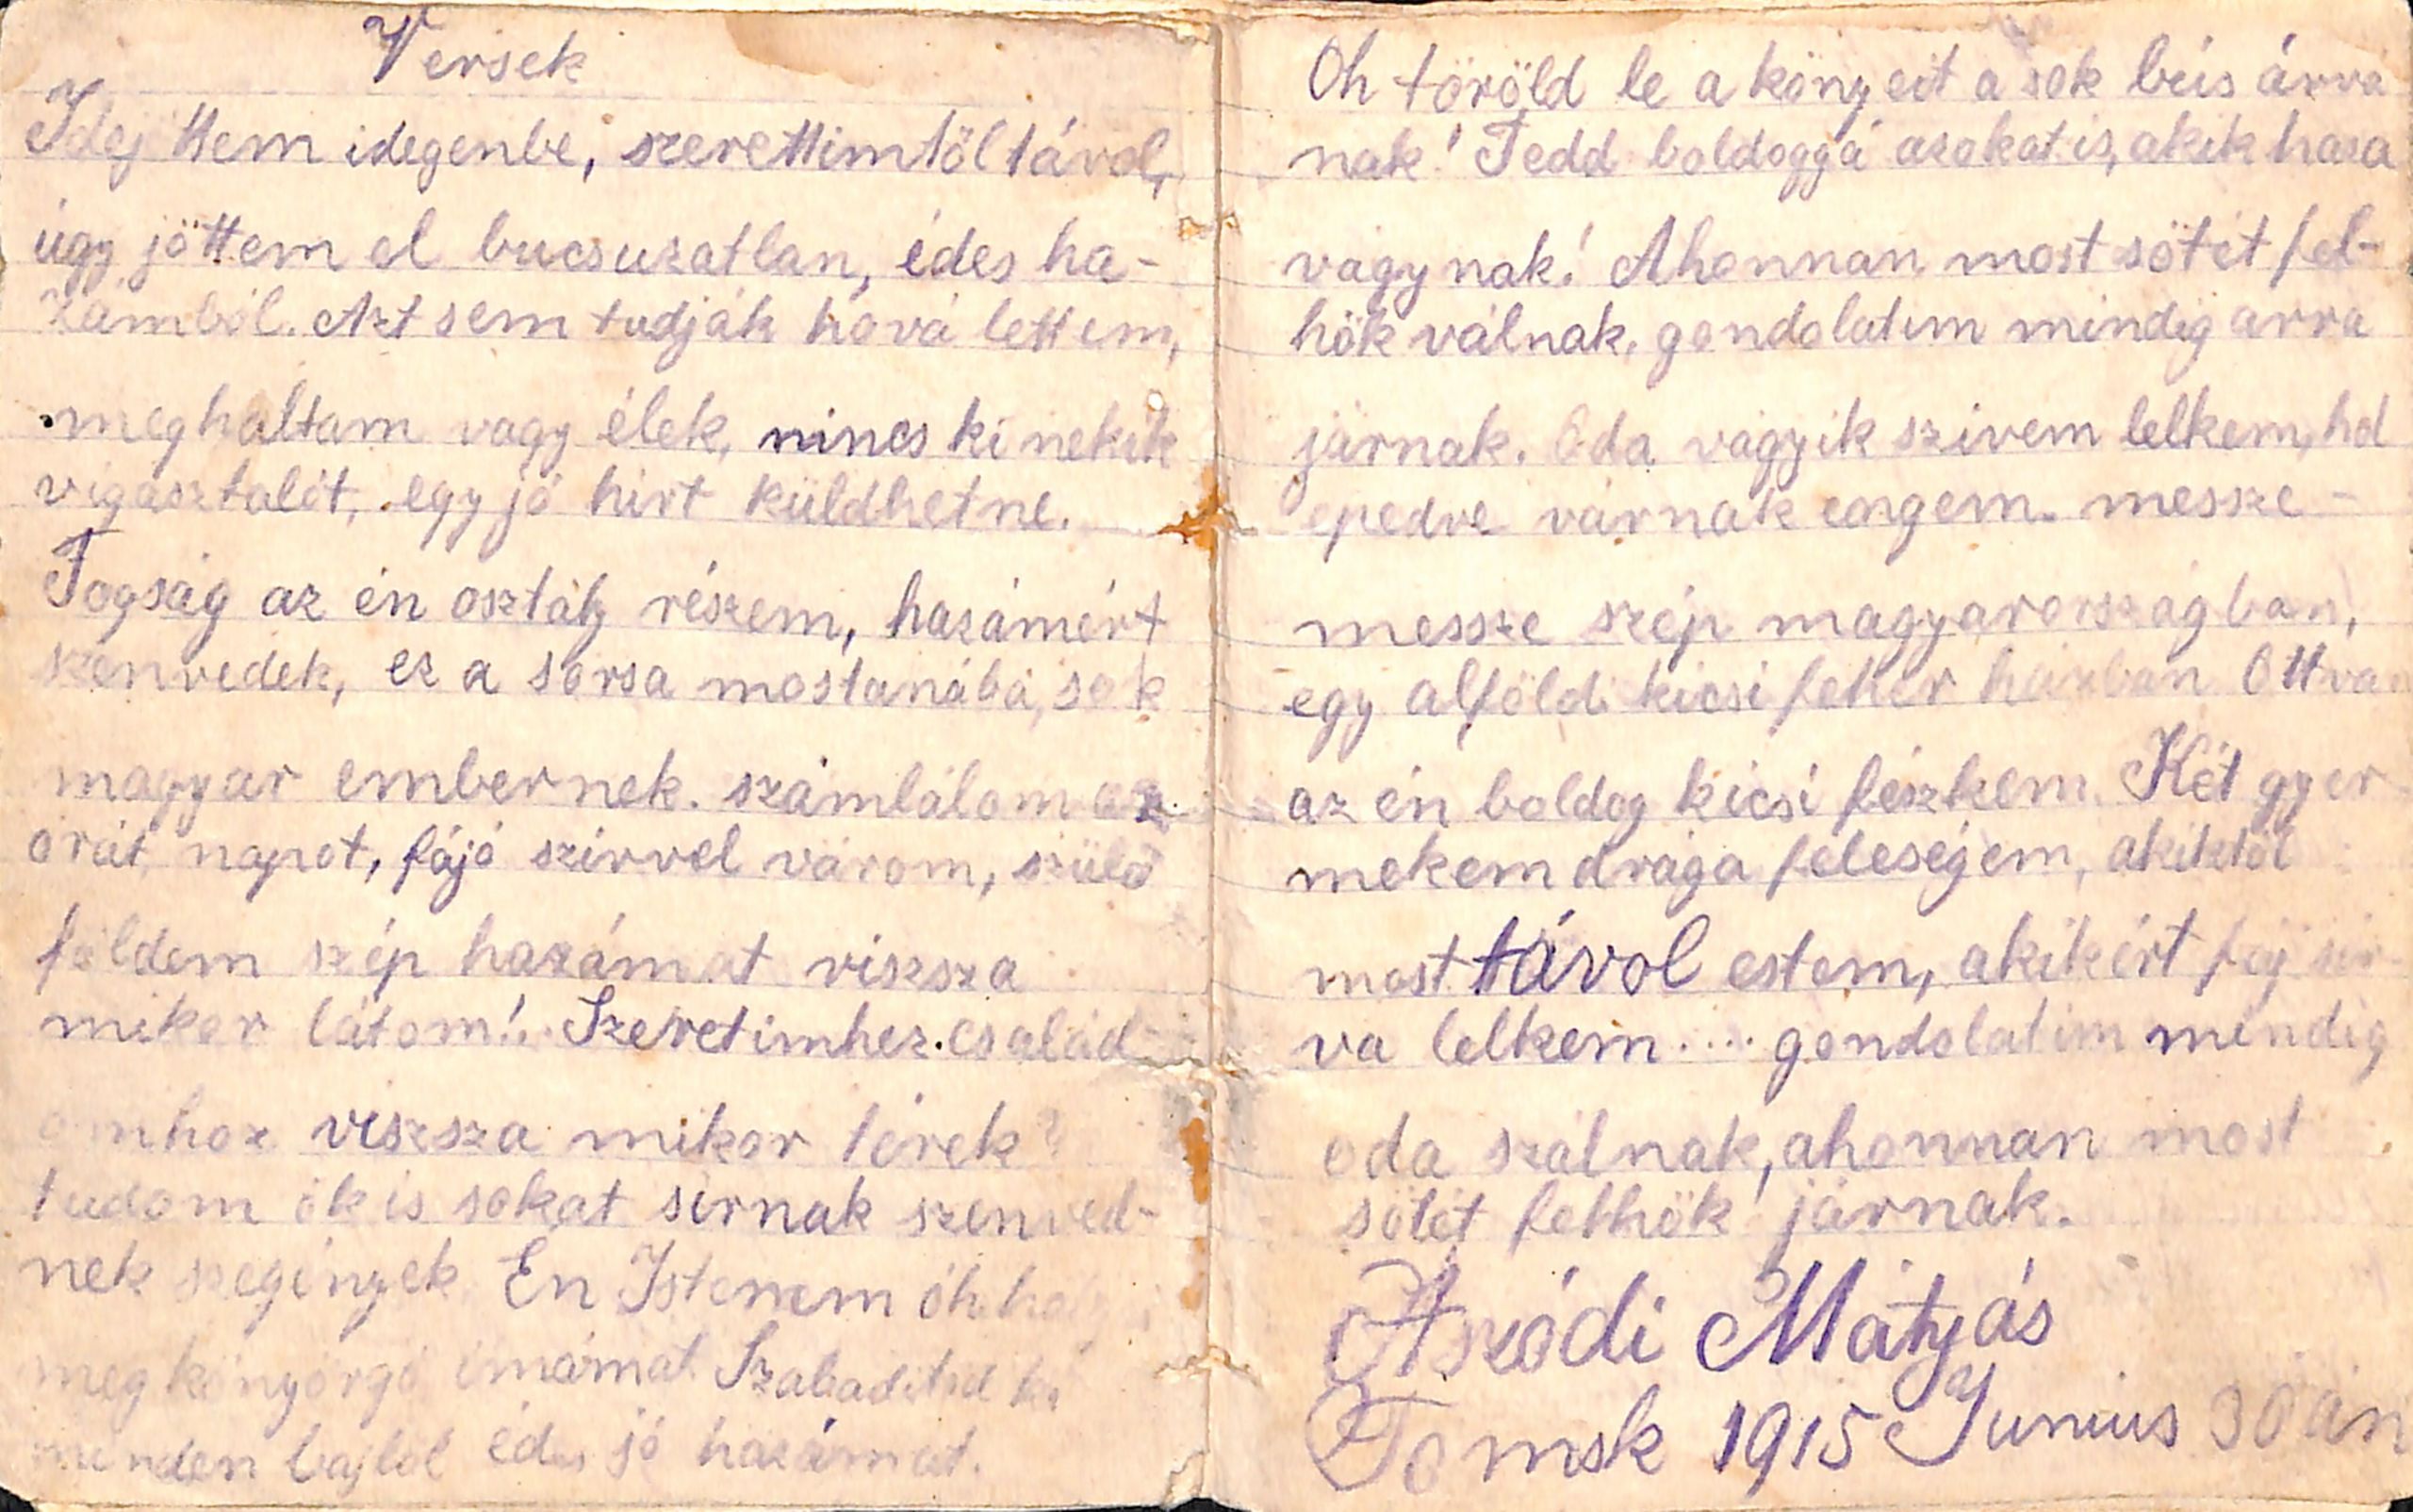 Versek
Idejöttem idegenbe, szerettimtöl távol,
úgy jöttem el bucsuzatlan, édes ha-
zámból. Azt sem tudják hová lettem,
meghaltam vagy élek, nincs ki nekik
vigasztalót, egy jó hirt küldhetne.
Fogság az én osztály részem, hazámért
szenvedek, ez a sorsa mostanába, sok
magyar embernek. számlálom az
órát napot, fájó szivvel várom, szülö
földem szép hazámat viszsza
mikor látom! Szeretimhez család
omhoz viszsza mikor térek?
tudom ök is sokat sirnak szenved-
nek szegények. Én Istenem óh
meg könyörgö imámat Szabaditsd ki
minden bajtól édes jó hazámat.
Oh töröld le a könyeit a sok bús árva
nak! Tedd boldoggá azokat is, akik haza
vágynak! Ahonnan most sötét fel-
hök válnak, gondolatim mindig arra
járnak. Oda vágyik szivem lelkem, hol
epedve várnak engem. messze-
messze szép magyarországban,
egy alföldi kicsi fehér házban Ott van
az én boldog kicsi fészkem. Két gyer
mekem drága feleségem, akiktöl
most távol estem, akikért fáj sir-
va lelkem.... gondolatim mindig
oda szálnak, ahonnan most
sötét felhök járnak.
Aszódi Mátyás
Tomsk 1915 Junius 30 án